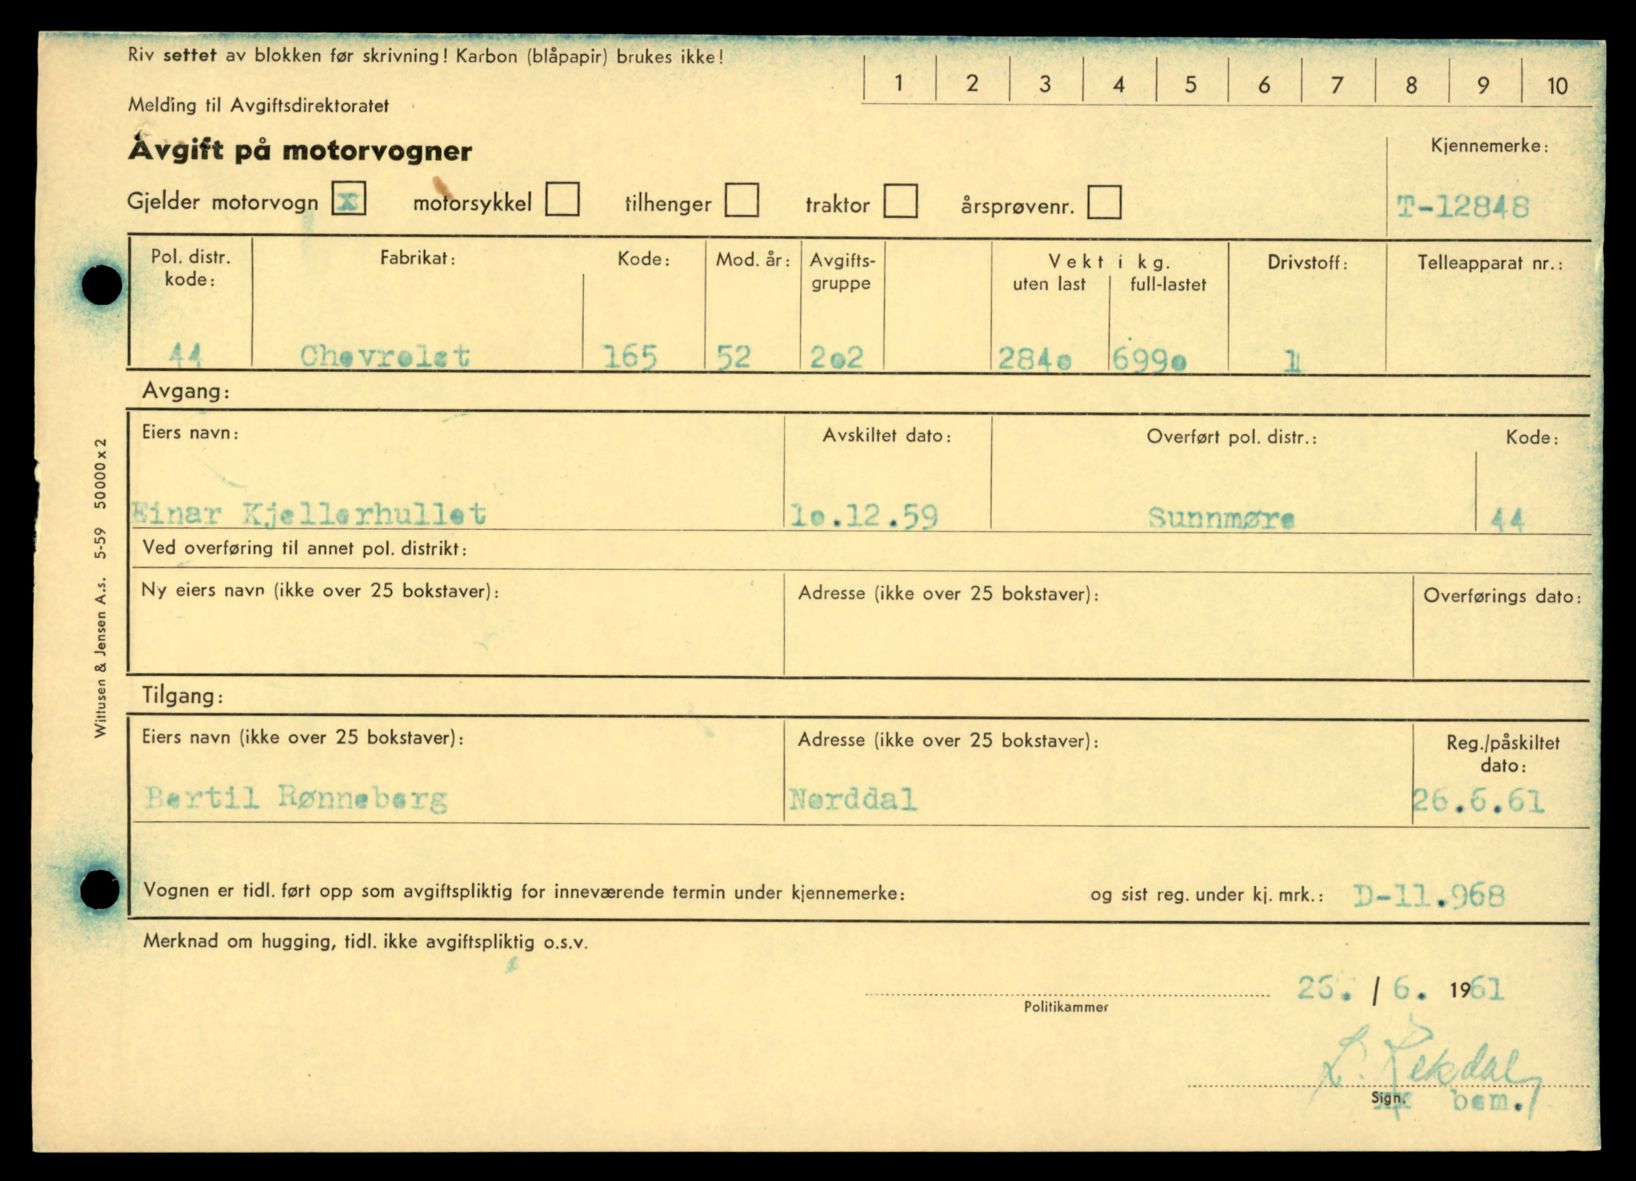 Riv settet av blokken før skrivning! Karbon (blåpapir) brukes ikke!
1 2 3 4 5 6 7 8 9 10
Melding til Avgiftsdirektoratet
Avgift på motorvogner
Kjennemerke:
Gjelder motorvogn x motorsykkel tilhenger traktor årsprøvenr.
T-12848
Pol. distr. kode: Fabrikat: Kode: Mod. år: Avgifts-gruppe Vekt i kg. uten last full-lastet Drivstoff: Telleapparat nr.:
44 Chevrolet 165 52 2o2 284o 699o 1
Avgang:
Eiers navn: Avskiltet dato: Overført pol. distr.: Kode:
Einar Kjellerhullet 1o.12.59 Sunnmøre 44
Ved overføring til annet pol. distrikt:
Ny eiers navn (ikke over 25 bokstaver): Adresse (ikke over 25 bokstaver): Overførings dato:
Tilgang:
Eiers navn (ikke over 25 bokstaver): Adresse (ikke over 25 bokstaver): Reg./påskiltet dato:
Bertil Rønneberg Norddal 26.6.61
Vognen er tidl. ført opp som avgiftspliktig for inneværende termin under kjennemerke: og sist reg. under kj. mrk.: D-11.968
Merknad om hugging, tidl. ikke avgiftspliktig o.s.v.
26. / 6. 1961
Politikammer
L. Rekdal
Sign. bem.
Wittusen & Jensen A.s. 5-59 50000x2